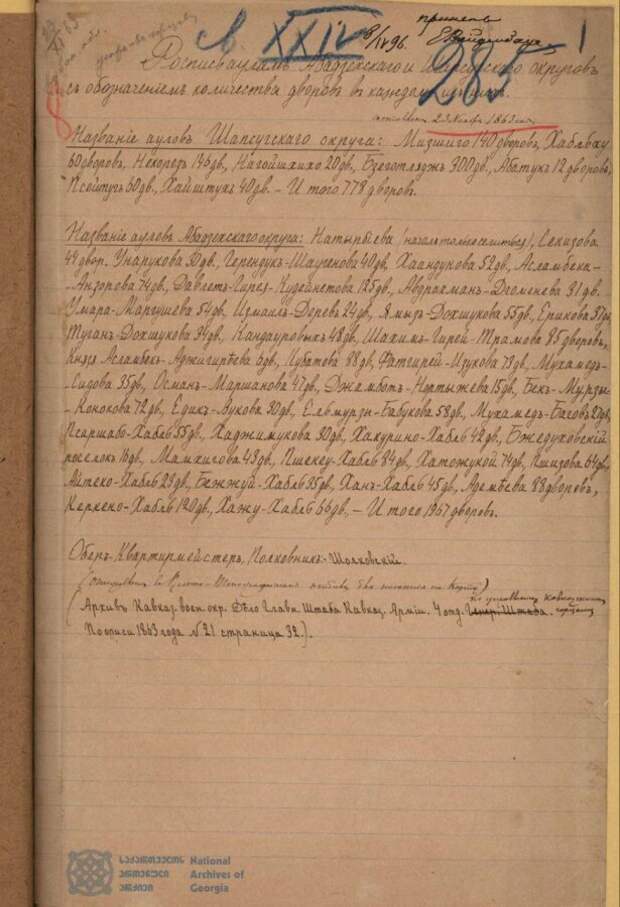 в. XXIV 8/IV 96. принятъ
281 1
Росписъ ауламъ Абадзехскаго и Шапсугскаго округовъ
съ обозначеніемъ количества дворовъ въ каждомъ изъ нихъ.
1863 года
Названіе ауловъ Шапсугскаго округа: Мизшиго 140 дворовъ, Хаблвку
60 дворовъ, Некоредъ 146 дв., Нагойшхихо 20 дв., Бзеготляджъ 300 дв., Абатукъ 12 дворовъ,
Псейтугъ 60 дв., Хайштукъ 40 дв. – Итого 778 дворовъ.
Названіе ауловъ Абадзехскаго округа: Натырбіева (начало только селиться), Селизова
44 двор. Унарукова 30 дв., Герендукъ-Шаугенова 40 дв., Хаандукова 52 дв., Асламбека-
-Анзорова 74 дв., Давлетъ-Гирея-Кудейнетова 125 дв., Абдрахманъ-Дгоменева 31 дв.
Умара-Маргушева 54 дв., Измаилъ-Дорева 24 дв., Ямызъ-Докшукова 55 дв., Ерикова 57 дв.
Туганъ-Докшукова 34 дв., Кандауровыхъ 48 дв., Шахимъ-Гирей-Трамова 85 дворовъ,
Князя Асламбекъ-Аджигирѣева дв., Цубатова 88 дв., Фатгирей-Изукова 73 дв., Мухамедъ-
Сидова 35 дв., Османъ-Маршанова 47 дв., Джамботъ-Нартыжева 15 дв., Бекъ-Мурзы-
-Конокова 72 дв., Едикъ-Зукова 30 дв., Ельмурзы-Бабукова 58 дв., Мухамедъ-Баговъ 27 дв.,
Псаршабо-Хабль 55 дв., Хаджимукова 30 дв., Хакурино-Хабль 48 дв., Бжедуховскій
поселокъ 16 дв., Мамхигова 43 дв., Пшекеу-Хабль 84 дв., Хатожукой 74 дв., Пшизова 64 дв.,
Айтеко-Хабль 29 дв., Бежжуй-Хабль 35 дв., Ханъ-Хабль 45 дв., Адемѣева 88 дворовъ,
Керкено-Хабль 120 дв., Хажу-Хабль 66 дв., – Итого 1967 дворовъ.
Оберъ-Квартирмейстеръ, Полковникъ-Шолковскій.
(Архивъ Кавказ. воен. окр. Дѣло Главн. Штаба Кавказ. Арміи. 4 отд. Генер. Штаба.
По описи 1863 года №21 страница 32.).
საქართველოს National
ეროვნული Archives of
არქივი Georgia